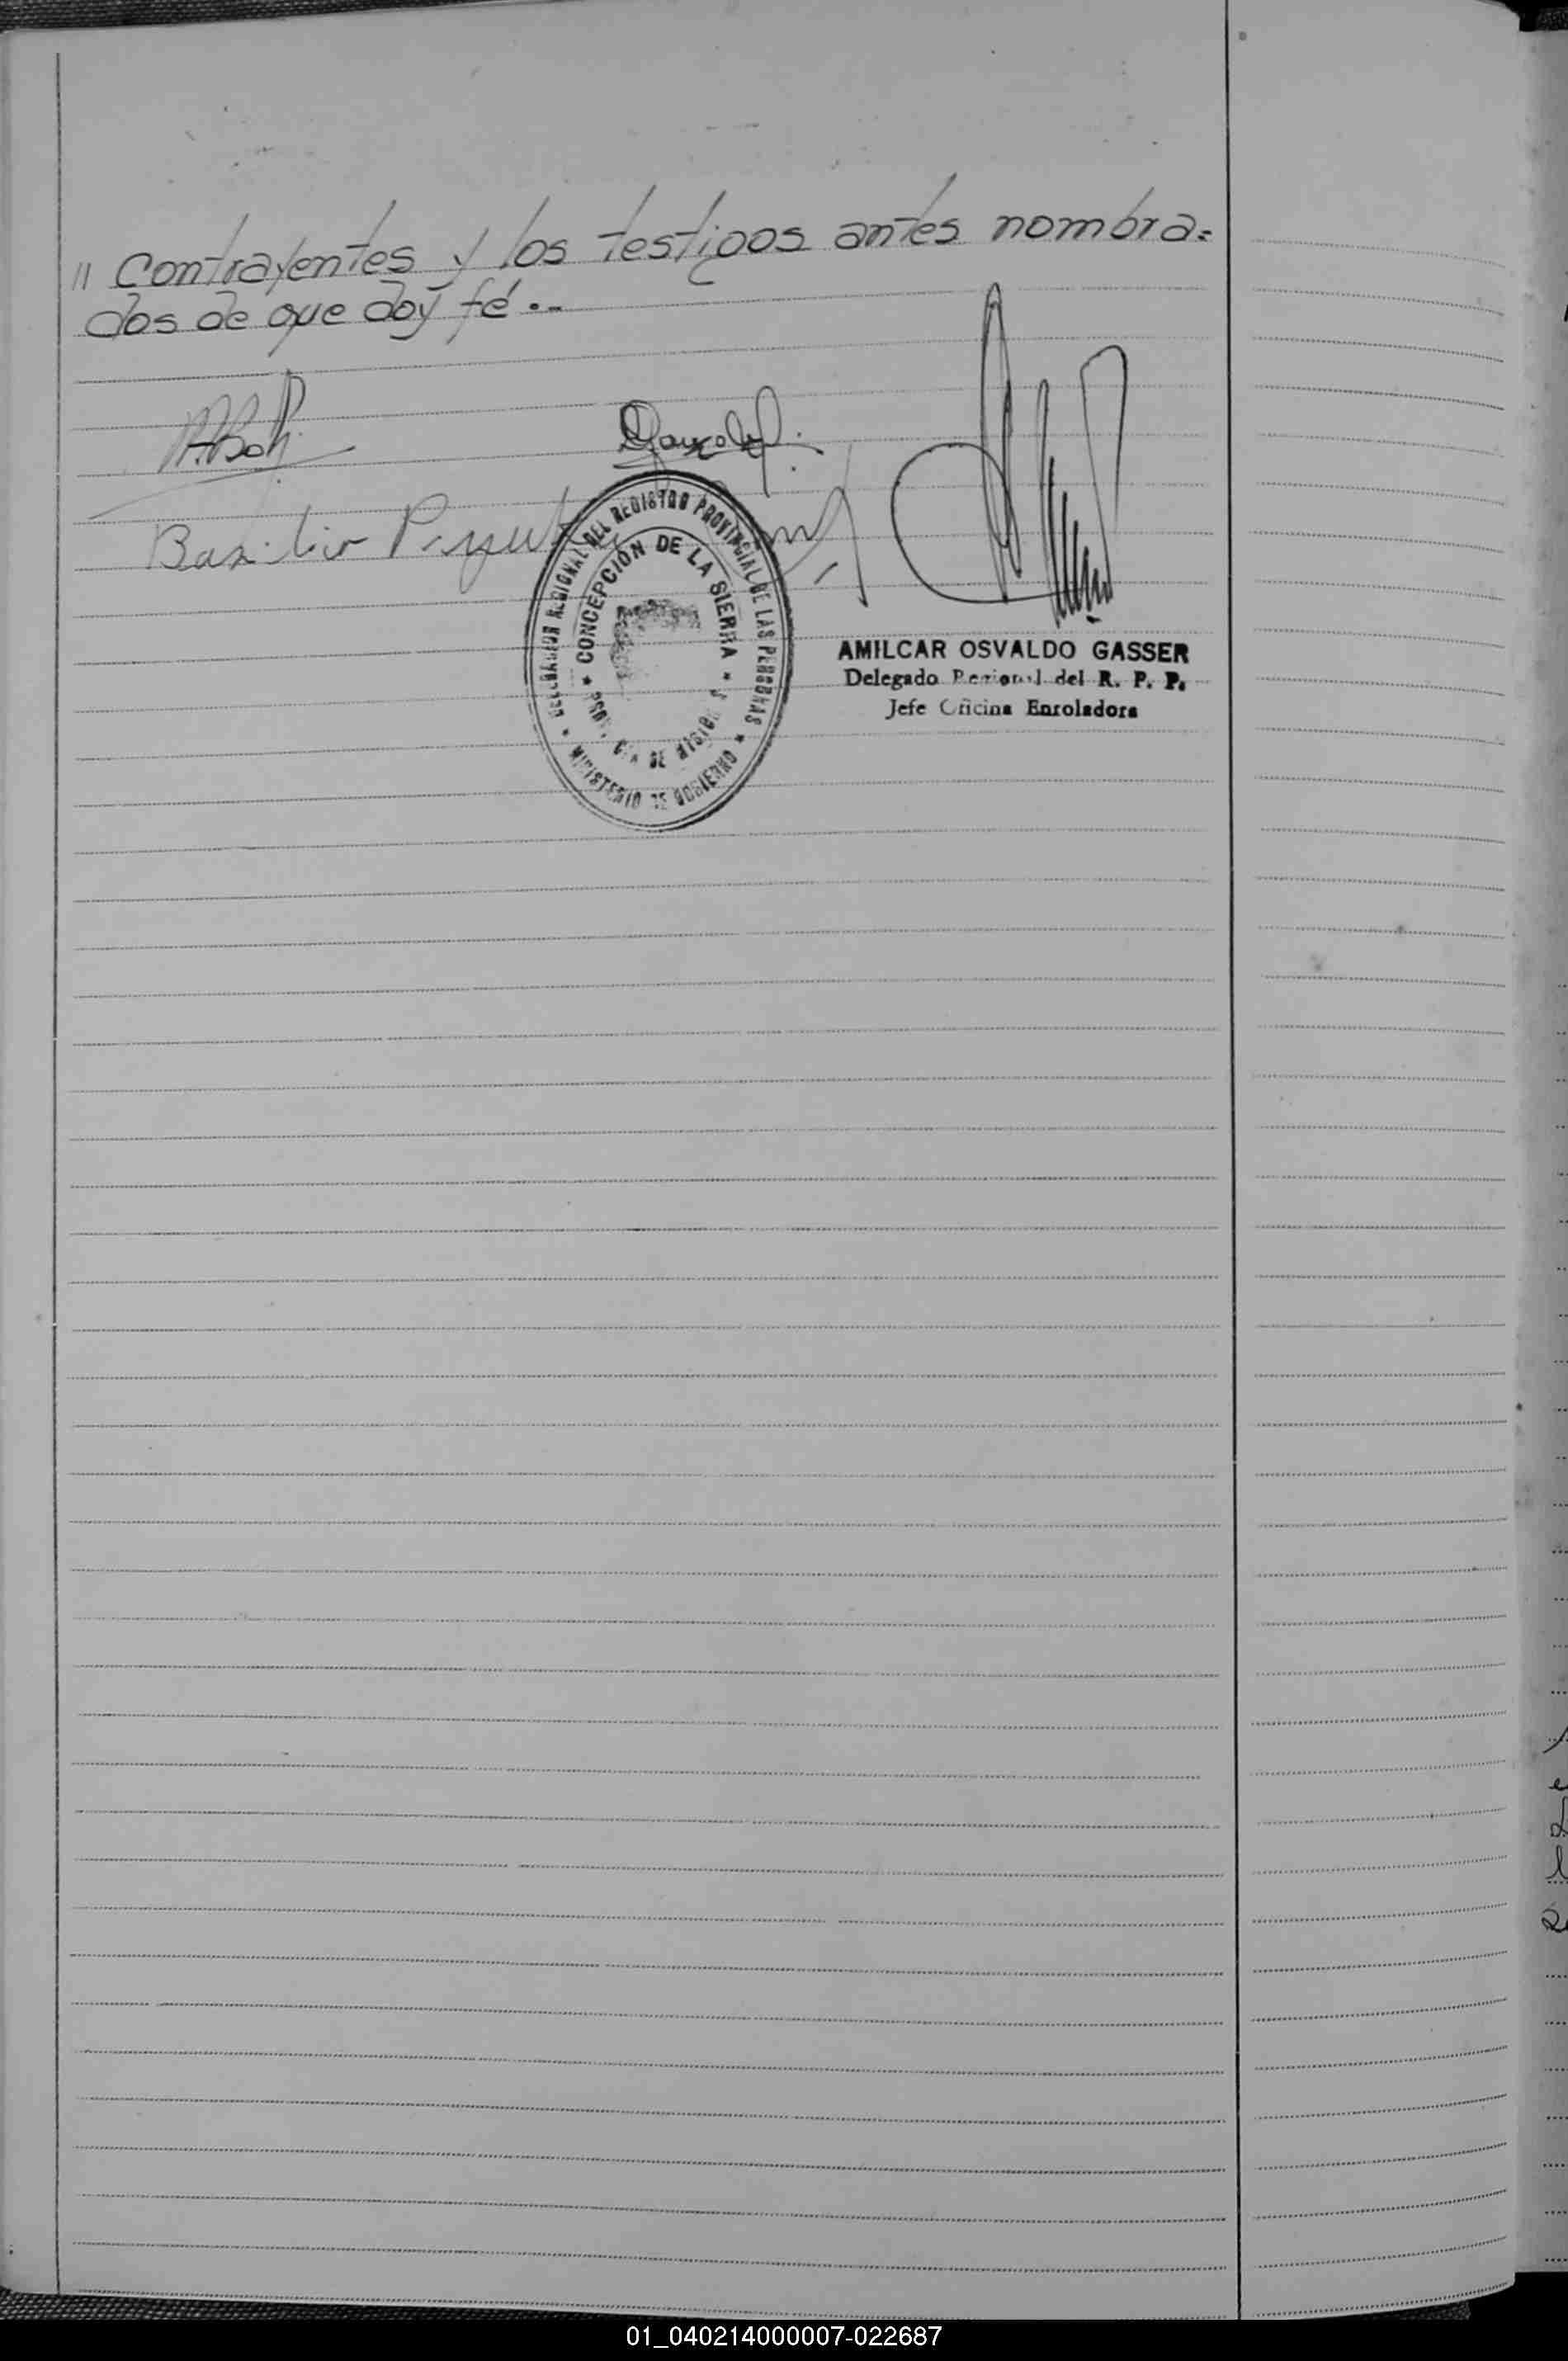 // Contrayentes y los testigos antes nombra=
dos de que doy fé.--
Basilio
DELEGACION REGIONAL DEL REGISTRO PROVINCIAL DE LAS PERSONAS
* CONCEPCIÓN DE LA SIERRA *
DE MISIONES
* MINISTERIO DE GOBIERNO *
AMILCAR OSVALDO GASSER
Delegado Regional del R. P. P.
Jefe Oficina Enroladora
01_040214000007-022687